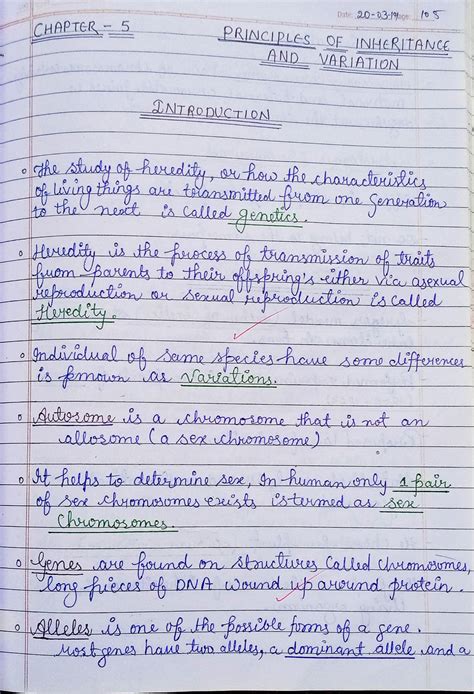 Date: 20-03-19 Page: 105
CHAPTER - 5 PRINCIPLES OF INHERITANCE
AND VARIATION
INTRODUCTION
The study of heredity, or how the characteristics
of living things are transmitted from one generation
to the next is called genetics.
Heredity is the process of transmission of traits
from parents to their offspring's either via asexual
reproduction or sexual reproduction is called
Heredity.
Individual of same species have some differences
is known as Variations.
Autosome is a chromosome that is not an
allosome (a sex chromosome)
It helps to determine sex, In human only 1 pair
of sex chromosomes exists is termed as sex
Chromosomes.
Genes are found on structures called chromosomes,
long pieces of DNA wound up around protein.
Alleles is one of the possible forms of a gene.
Most genes have two alleles, a dominant allele and a